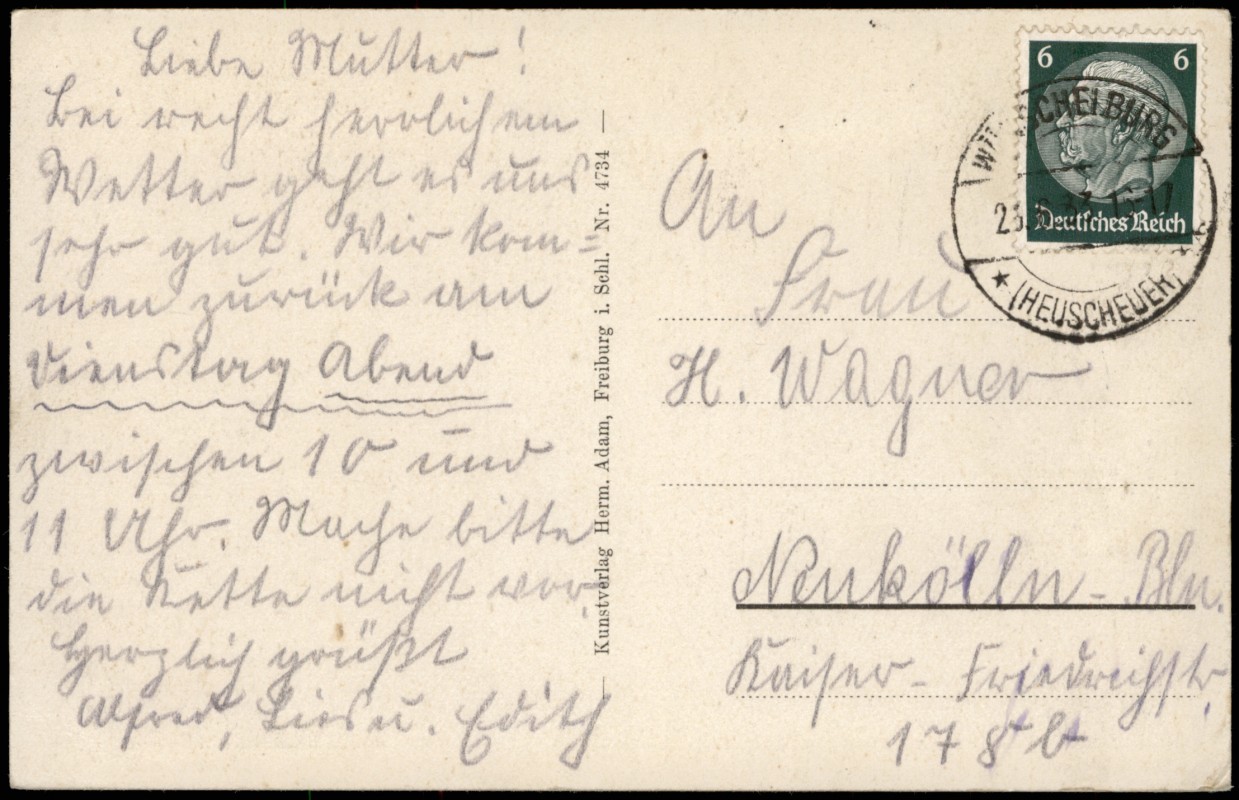 Liebe Mutter!
Bei recht herrlichem
Wetter geht es uns
sehr gut. Wir kom=
men zurück am
Dienstag Abend
zwischen 10 und
11 Uhr. Mache bitte
die Kette nicht vor.
Herzlich grüßt
Alfred, Lies u. Edith
Kunstverlag Herm. Adam, Freiburg i. Schl. Nr. 4734
6 6
Deutsches Reich
WÜNSCHELBURG
(HEUSCHEUER)
An
Frau
H. Wagner
Neukölln - Bln.
Kaiser - Friedrichstr.
178 b